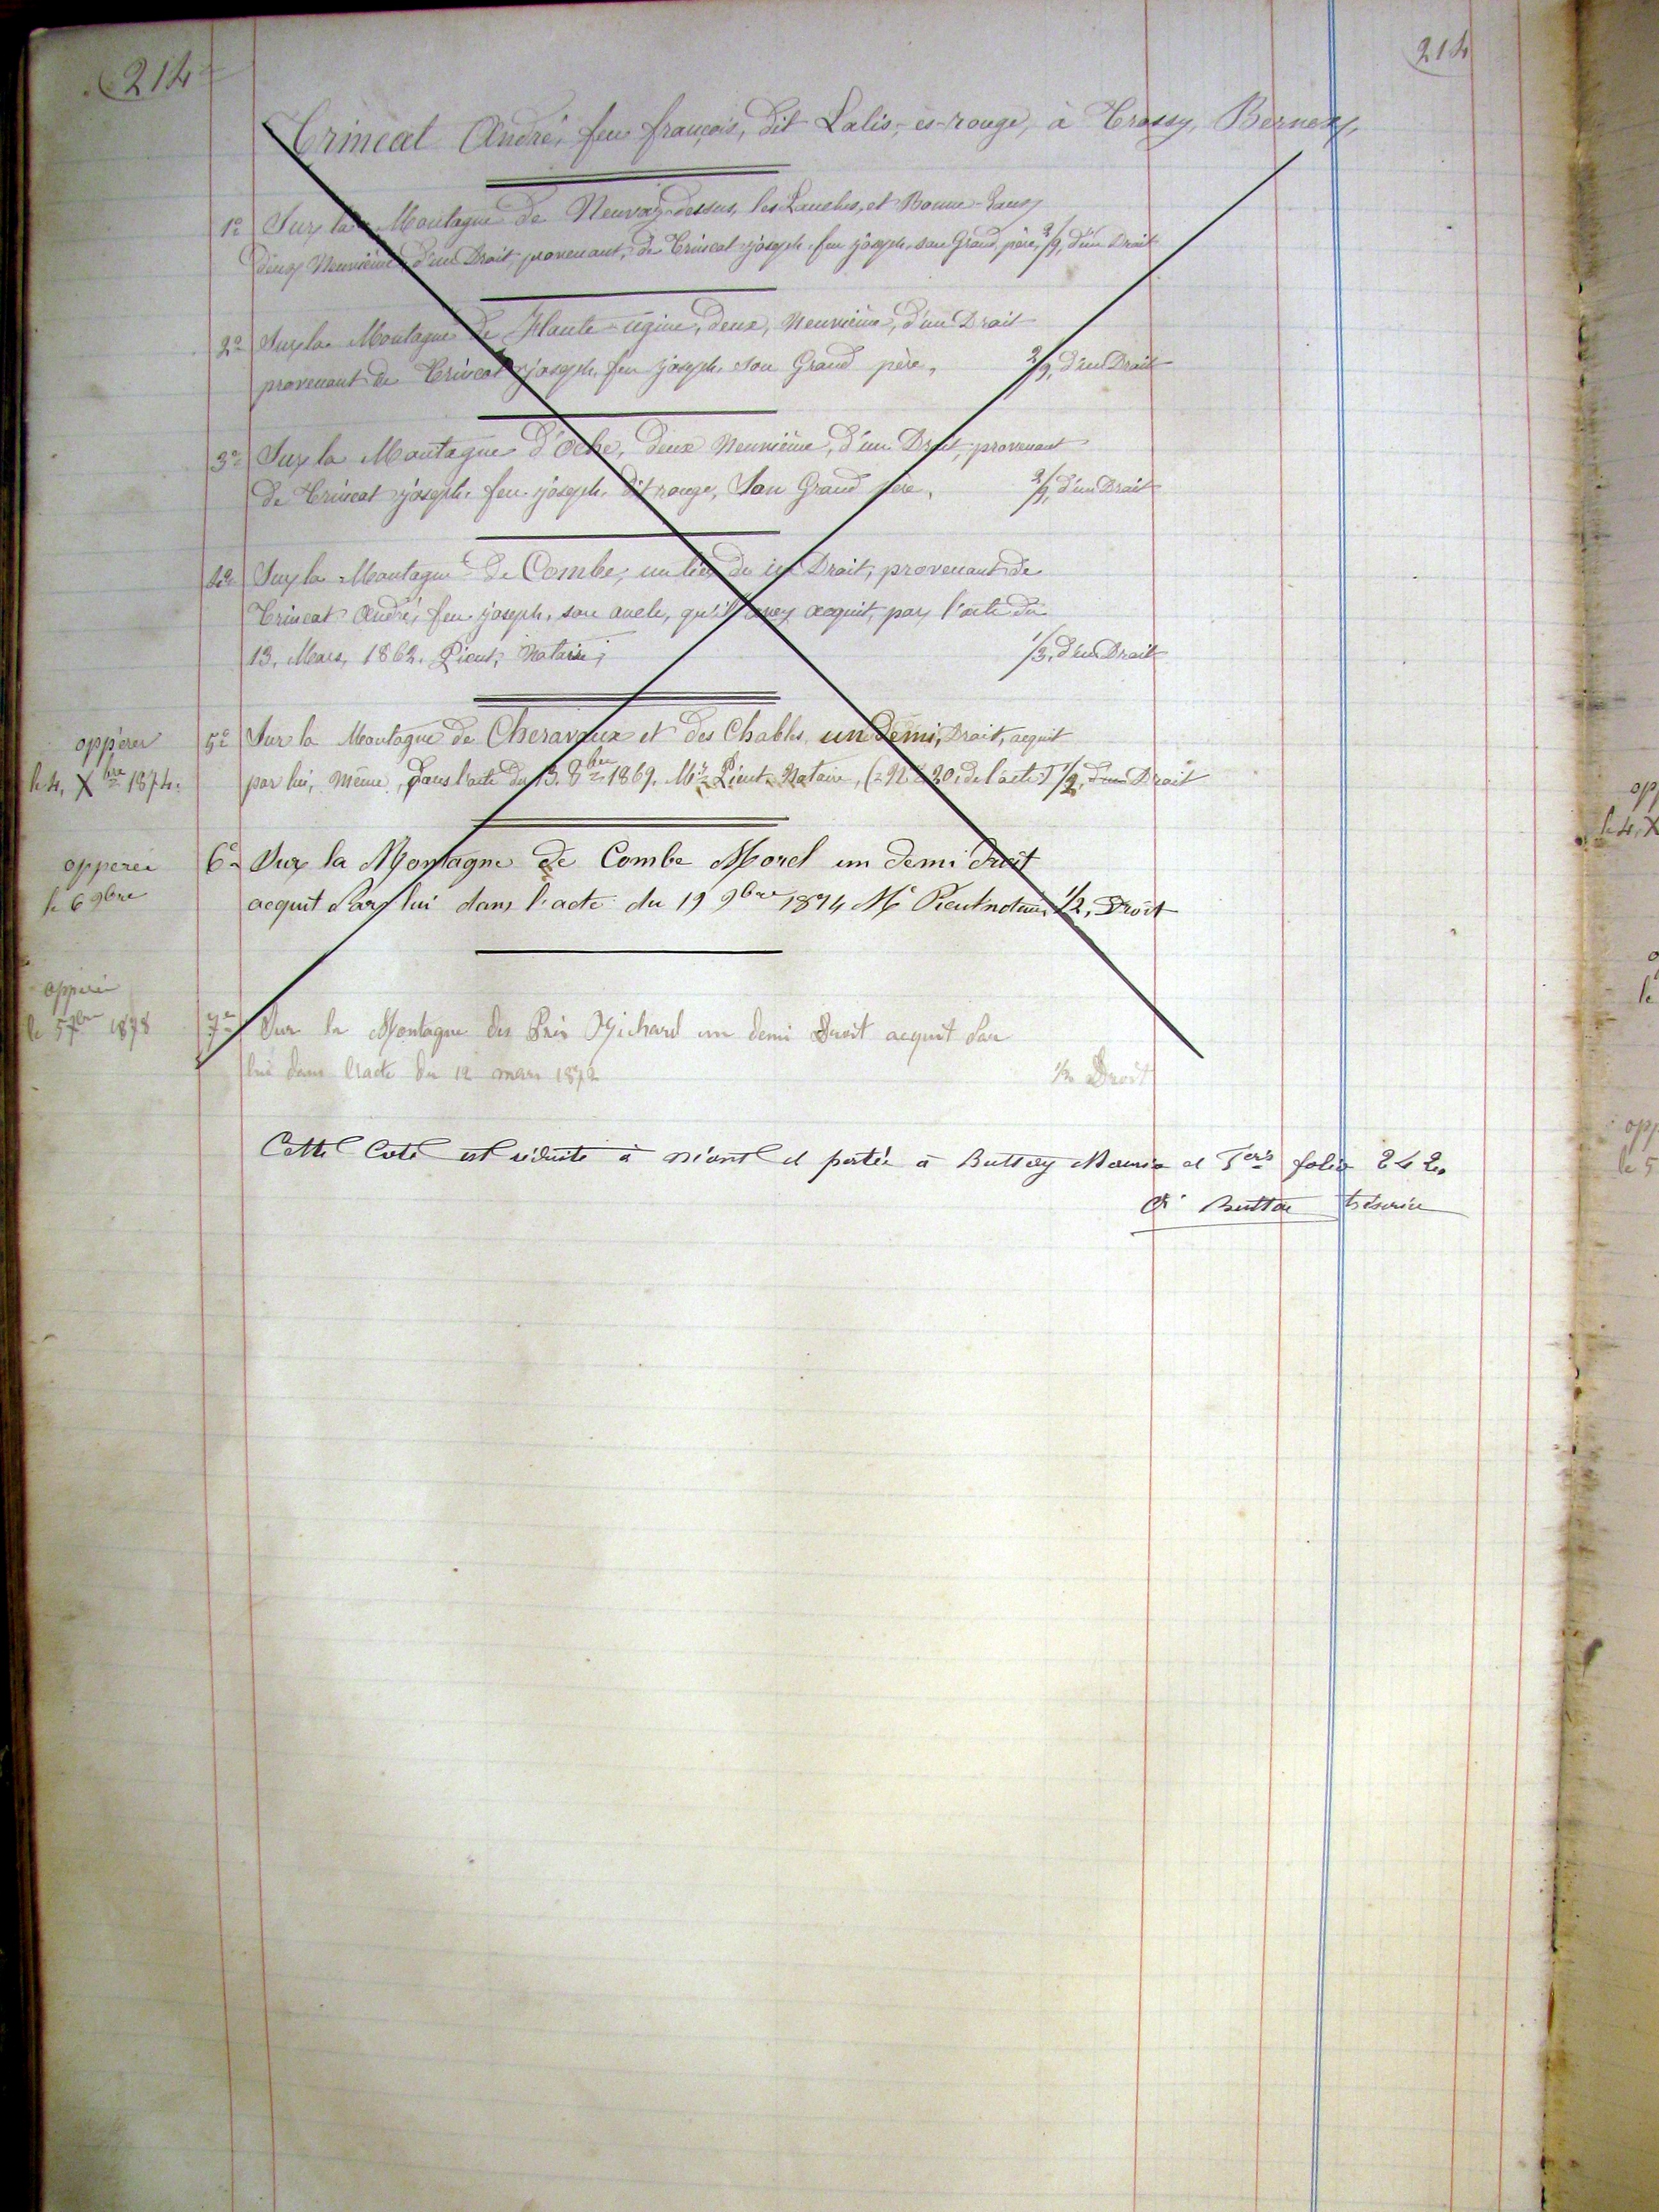 214
214
Trincat André, feu françois, dit Lalis, ès-rouge, à Trossy, Bernex,
1º Sur la Montagne de Neuvaz-dessus, les Lanches, et Bonne-Eaux
deux Neuvième, d'un Droit, provenant, de Trincat joseph, feu joseph, son Grand, père, 2/9, d'un Droit
2º Sur la Montagne de Haute-ugine, deux, Neuvième, d'un Droit
provenant de Trincat joseph, feu joseph, son Grand père, 2/9, d'un Droit
3º Sur la Montagne d'Oche, deux Neuvième, d'un Droit, provenant
de Trincat joseph, feu joseph, dit rouge, Son Grand père, 2/9, d'un Droit
4º Sur la Montagne de Combe, un tier de un Droit, provenant de
Trincat André, feu joseph, son oncle, qu'il avez acquit, par l'acte du
13, Mars, 1862. Picut, Notaire, 1/3, d'un Droit
opp'erer
le 4, Xbre 1874.
5º Sur la Montagne de Cheravaux et des Chables, un Demi, Droit, acquit
par lui, même, dans l'acte du 13. 8bre 1869. Me Picut Notaire, 1/2, d'un Droit
opperei
le 6 9bre
6º Sur la Montagne de Combe Morel un demi droit
acquit Par lui dans l'acte du 19 9bre 1874 Me Picut notaire 1/2, Droit
opperei
le 5 7bre 1878
7º Sur la Montagne des Prés Richard un demi Droit acquit Par
lui dans l'acte du 12 mars 1872 1/2 Droit
Cette Cote est réduite à néant et portée à Buttay Maurice et Frs folio 242.
Buttay trésorier
opp
le 4, X
o
le
opp
le 5